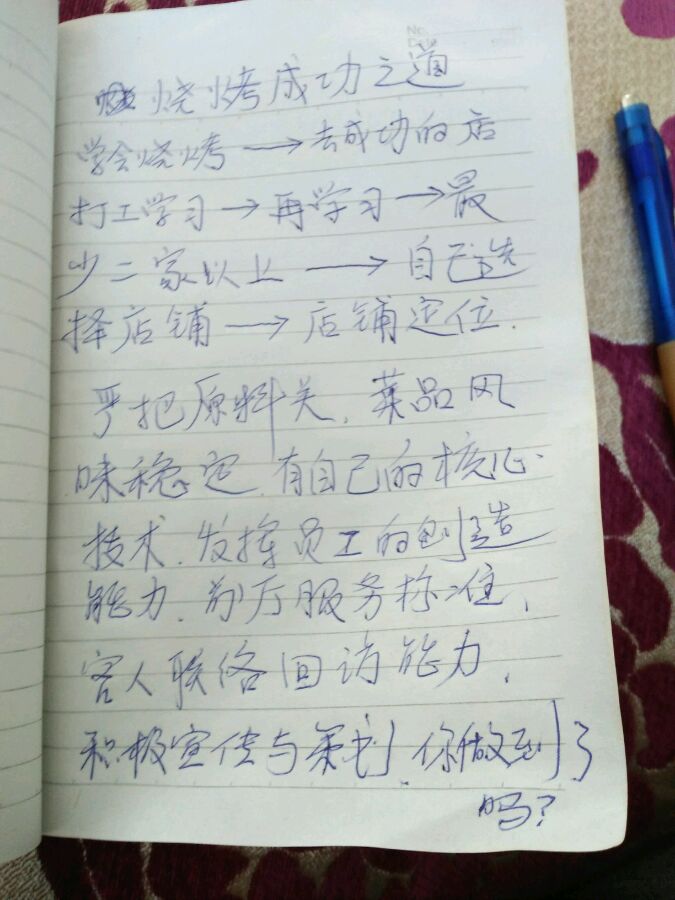 No
Date
烧烤成功之道
学会烧烤→去成功的店
打工学习→再学习→最
少二家以上→自己选
择店铺→店铺定位.
严把原料关、菜品风
味稳定、有自己的核心
技术、发挥员工的创造
能力、前厅服务标准、
客人联络回访能力、
积极宣传与策划、你做到了
吗?